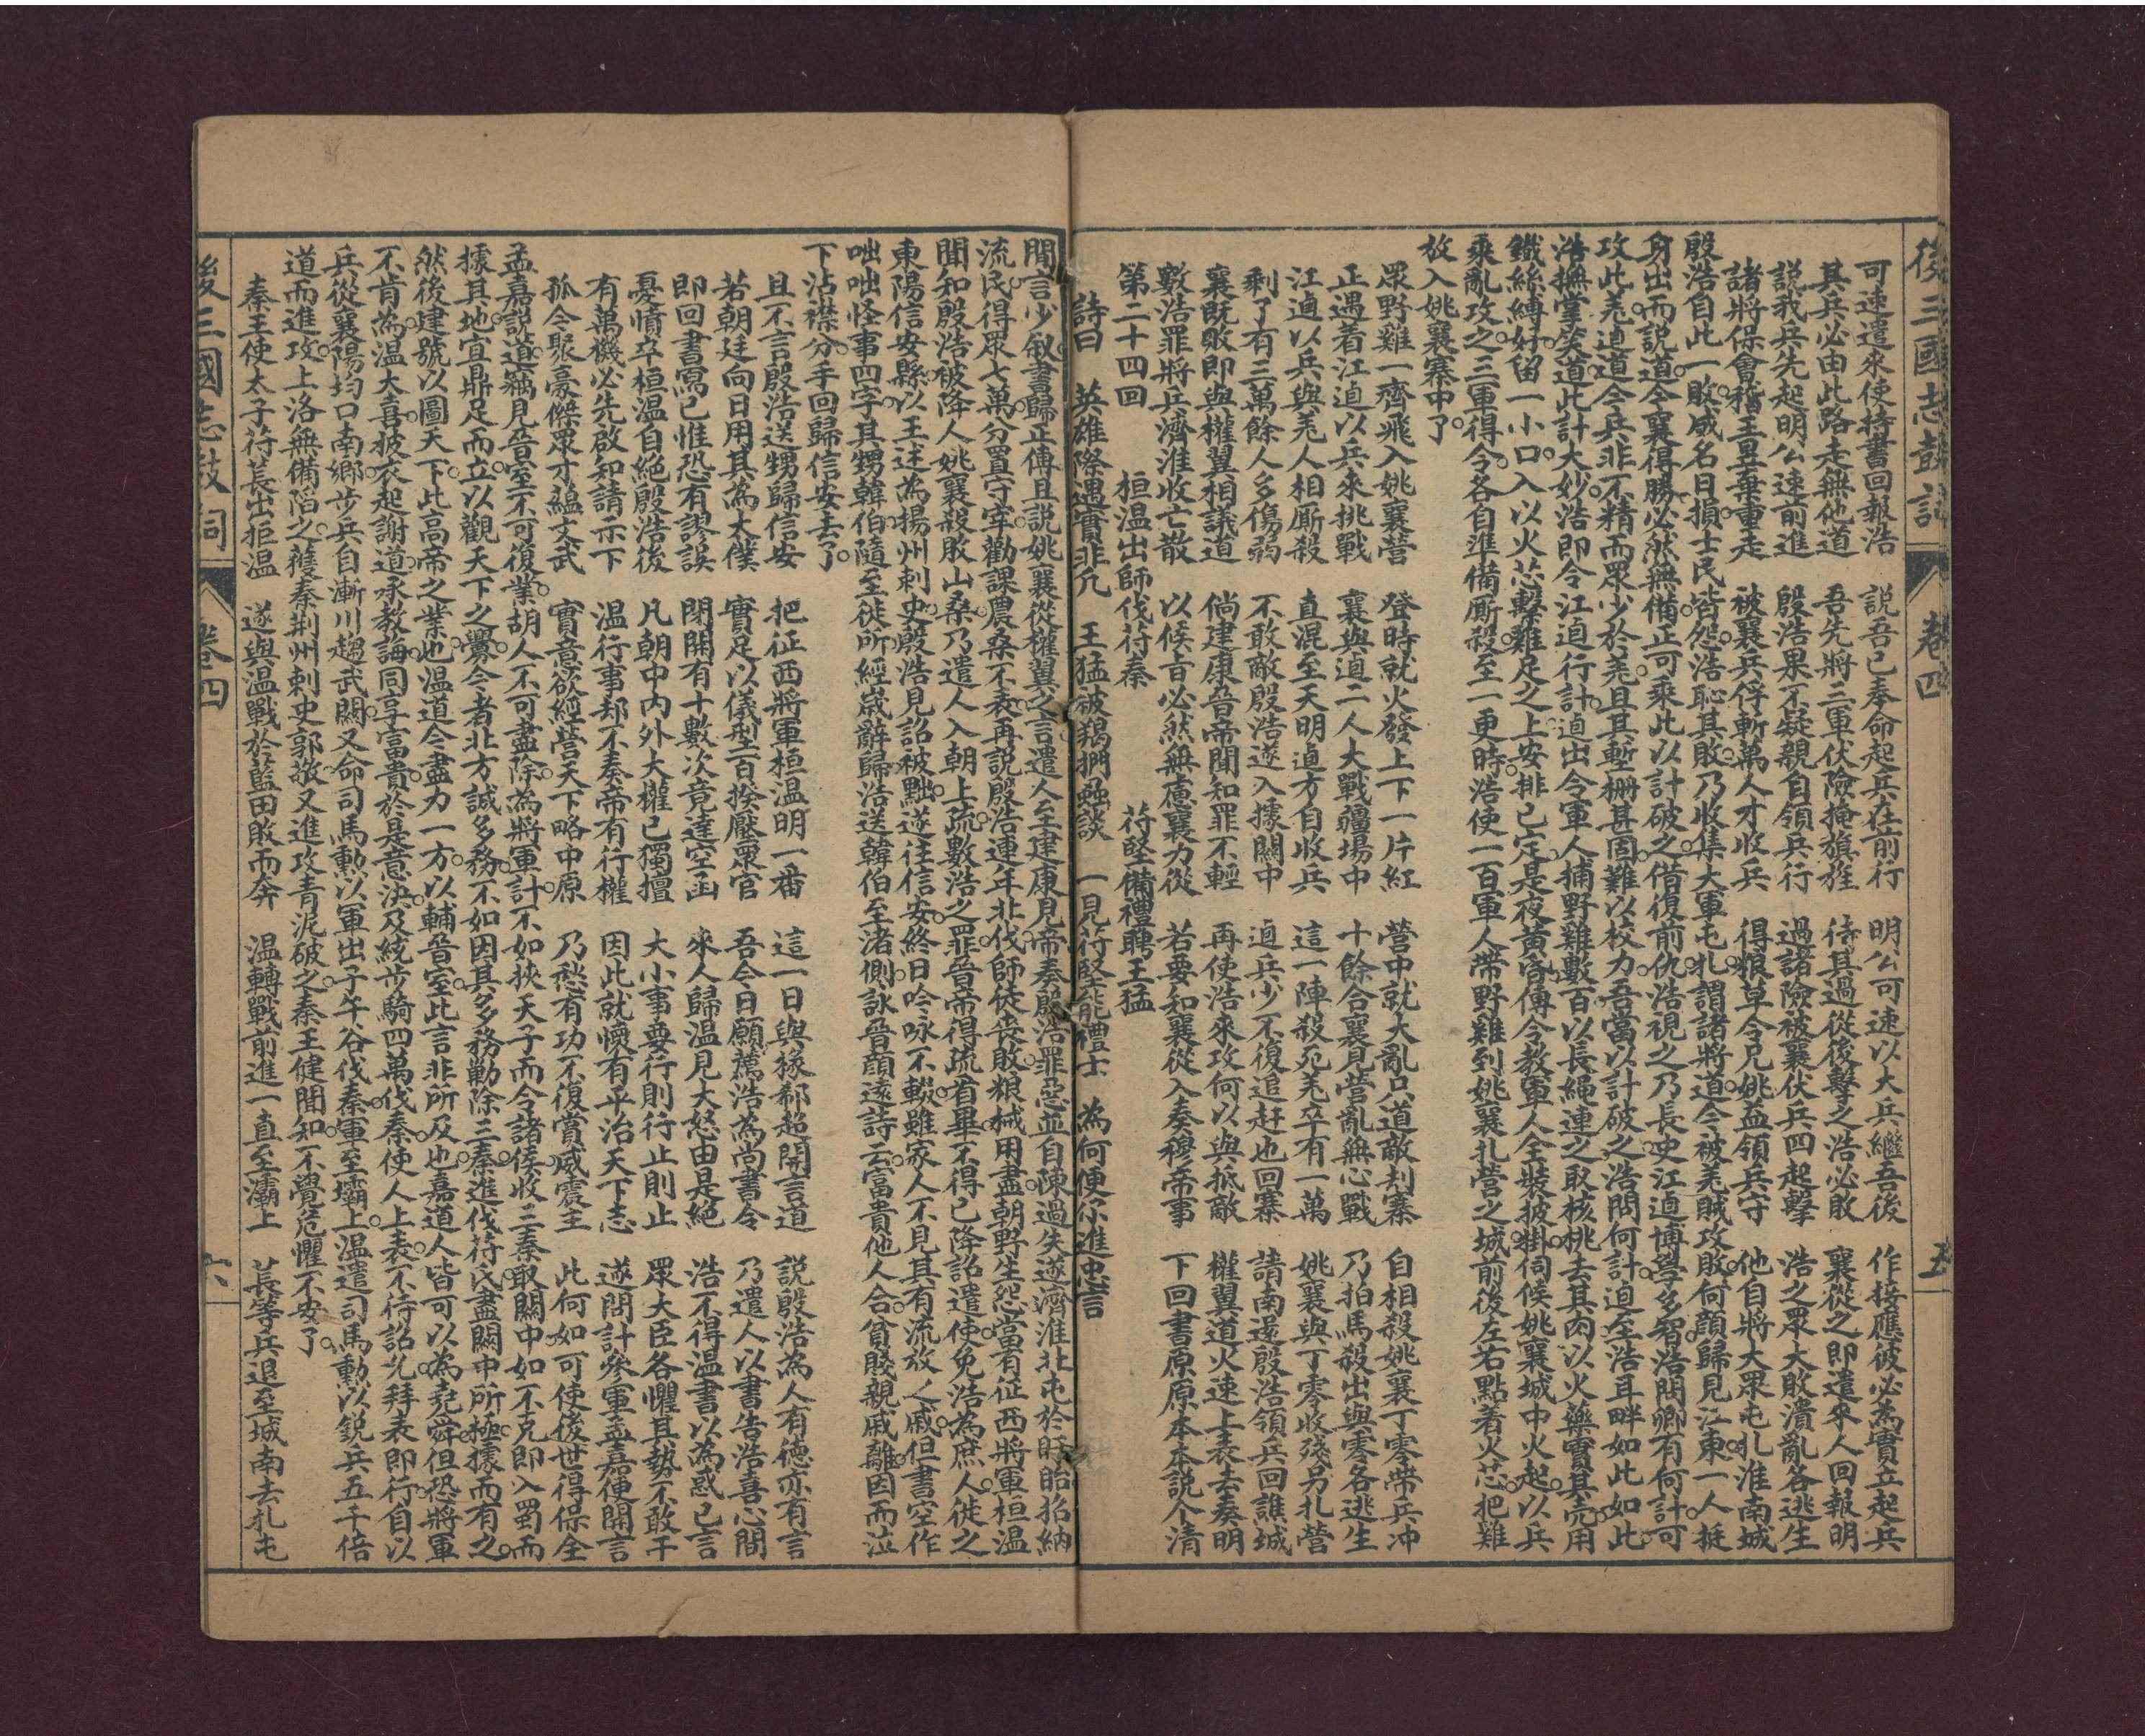 後三國志鼓詞 卷四 五
可速遣來使持書回報浩 說吾已奉命起兵在前行 明公可速以大兵繼吾後 作接應彼必為實立起兵
其兵必由此路走無他道 吾先將三軍伏險掩旗旌 待其過從後擊之浩必敗 襄從之即遣來人回報明
說我兵先起明公速前進 殷浩果不疑親自領兵行 過諸險被襄伏兵四起擊 浩之眾大敗潰亂各逃生
諸將保會稽王昱棄重走 被襄兵俘斬萬人才收兵 得粮草令兄姚益領兵守 他自將大眾屯扎淮南城
殷浩自此一敗威名日損士民皆怨浩恥其敗乃收集大軍屯扎謂諸將道今被羌賊攻敗何顏歸見江東一人挺
身出而說道今襄得勝必然無備正可乘此以計破之借復前仇浩視之乃長史江逌博學多智浩問卿有何計可
攻此羌逌道今兵非不精而眾少於羌且其塹柵甚固難以校力吾當以計破之浩問何計逌至浩耳畔如此如此
浩撫掌笑道此計大妙浩即令江逌行計逌出令軍人捕野雞數百以長繩連之取核桃去其肉以火藥實其壳用
鐵絲縛好留一小口入以火芯繫雞足之上安排已定是夜黃昏傳令教軍人全裝披掛伺候姚襄城中火起以兵
乘亂攻之三軍得令各自準備廝殺至一更時浩使一百軍人帶野雞到姚襄扎營之城前後左右點着火芯把雞
放入姚襄寨中了
眾野雞一齊飛入姚襄營 登時就火發上下一片紅 營中就大亂只道敵刦寨 自相殺姚襄丁零帶兵冲
正遇着江逌以兵來挑戰 襄與逌二人大戰疆場中 十餘合襄見營亂無心戰 乃拍馬殺出與零各逃生
江逌以兵與羌人相厮殺 直混至天明逌方自收兵 這一陣殺死羌卒有一萬 姚襄與丁零收殘另扎營
剩了有三萬餘人多傷弱 不敢敵殷浩遂入據關中 逌兵少不復追赶也回寨 請南還殷浩領兵回譙城
襄既敗即與權翼相議道 倘建康晉帝聞知罪不輕 再使浩來攻何以與抵敵 權翼道火速上表去奏明
數浩罪將兵濟淮收亡散 以候音必然無慮襄力從 若要和襄從入奏穆帝事 下回書原原本本說个清
第二十四回 桓温出師伐苻秦 苻堅備禮聘王猛
詩曰 英雄際遇實非凡 王猛被羯捫蝨談 一見苻堅能禮士 為何便尔進忠言
閒言少敘書歸正傳且說姚襄從權翼之言遣人至建康見帝奏殷浩罪惡並自陳過失遂濟淮北屯於盱眙招納
流民得眾七萬分置守宰勸課農桑不表再說殷浩連年北伐師徒喪敗粮械用盡朝野生怨當有征西將軍桓温
聞知殷浩被降人姚襄殺敗山桑乃遣人入朝上疏數浩之罪晉帝得疏看畢不得已降詔遣使免浩為庶人徙之
東陽信安縣以王述為揚州刺史殷浩見詔被黜遂往信安終日吟咏不輟雖家人不見其有流放之戚但書空作
咄咄怪事四字其甥韓伯隨至徙所經歲辭歸浩送韓伯至渚側詠晉顏遠詩云富貴他人合貧賤親戚離因而泣
下沾襟分手回歸信安去了
且不言殷浩送甥歸信安 把征西將軍桓温明一番 這一日與掾郗超開言道 說殷浩為人有德亦有言
若朝廷向日用其為太僕 實足以儀型百揆壓眾官 吾今日願薦浩為尚書令 乃遣人以書告浩喜心間
即回書寫已惟恐有謬誤 閉開有十數次竟達空函 來人歸温見大怒由是絕 浩不得温書以為惑已言
憂憤卒桓温自絕殷浩後 凡朝中內外大權已獨擅 大小事要行則行止則止 眾大臣各懼其勢不敢干
有萬機必先啟知請示下 温行事却不奏帝有行權 因此就懷有平治天下志 遂閉計參軍孟嘉便開言
孤今聚豪傑眾才蘊文武 實意欲經營天下略中原 乃愁有功不復賞威震主 此何如可使後世得保全
孟嘉說道竊見晉室不可復業胡人不可盡除為將軍計不如挾天子而令諸侯收三秦取關中如不克即入蜀而
據其地宜鼎足而立以觀天下之釁今者北方誠多務不如因其多務勦除三秦進伐苻氏盡關中所極據而有之
然後建號以圖天下此高帝之業也温道今盡力一方以輔晉室此言非所及也嘉道人皆可以為堯舜但恐將軍
不肯為温大喜披衣起謝道承教誨同享富貴於是意決及統步騎四萬伐秦使人上表不待詔允拜表即行自以
兵從襄陽均口南鄉步兵自淅川趨武關又命司馬勳以軍出子午谷伐秦軍至壩上温遣司馬勳以銳兵五千倍
道而進攻上洛無備陷之獲秦荆州刺史郭敬又進攻青泥破之秦王健聞知不覺危懼不安了
秦王使太子苻萇出拒温 遂與温戰於藍田敗而奔 温轉戰前進一直至灞上 萇等兵退至城南去扎屯
後三國志鼓詞 卷四 六